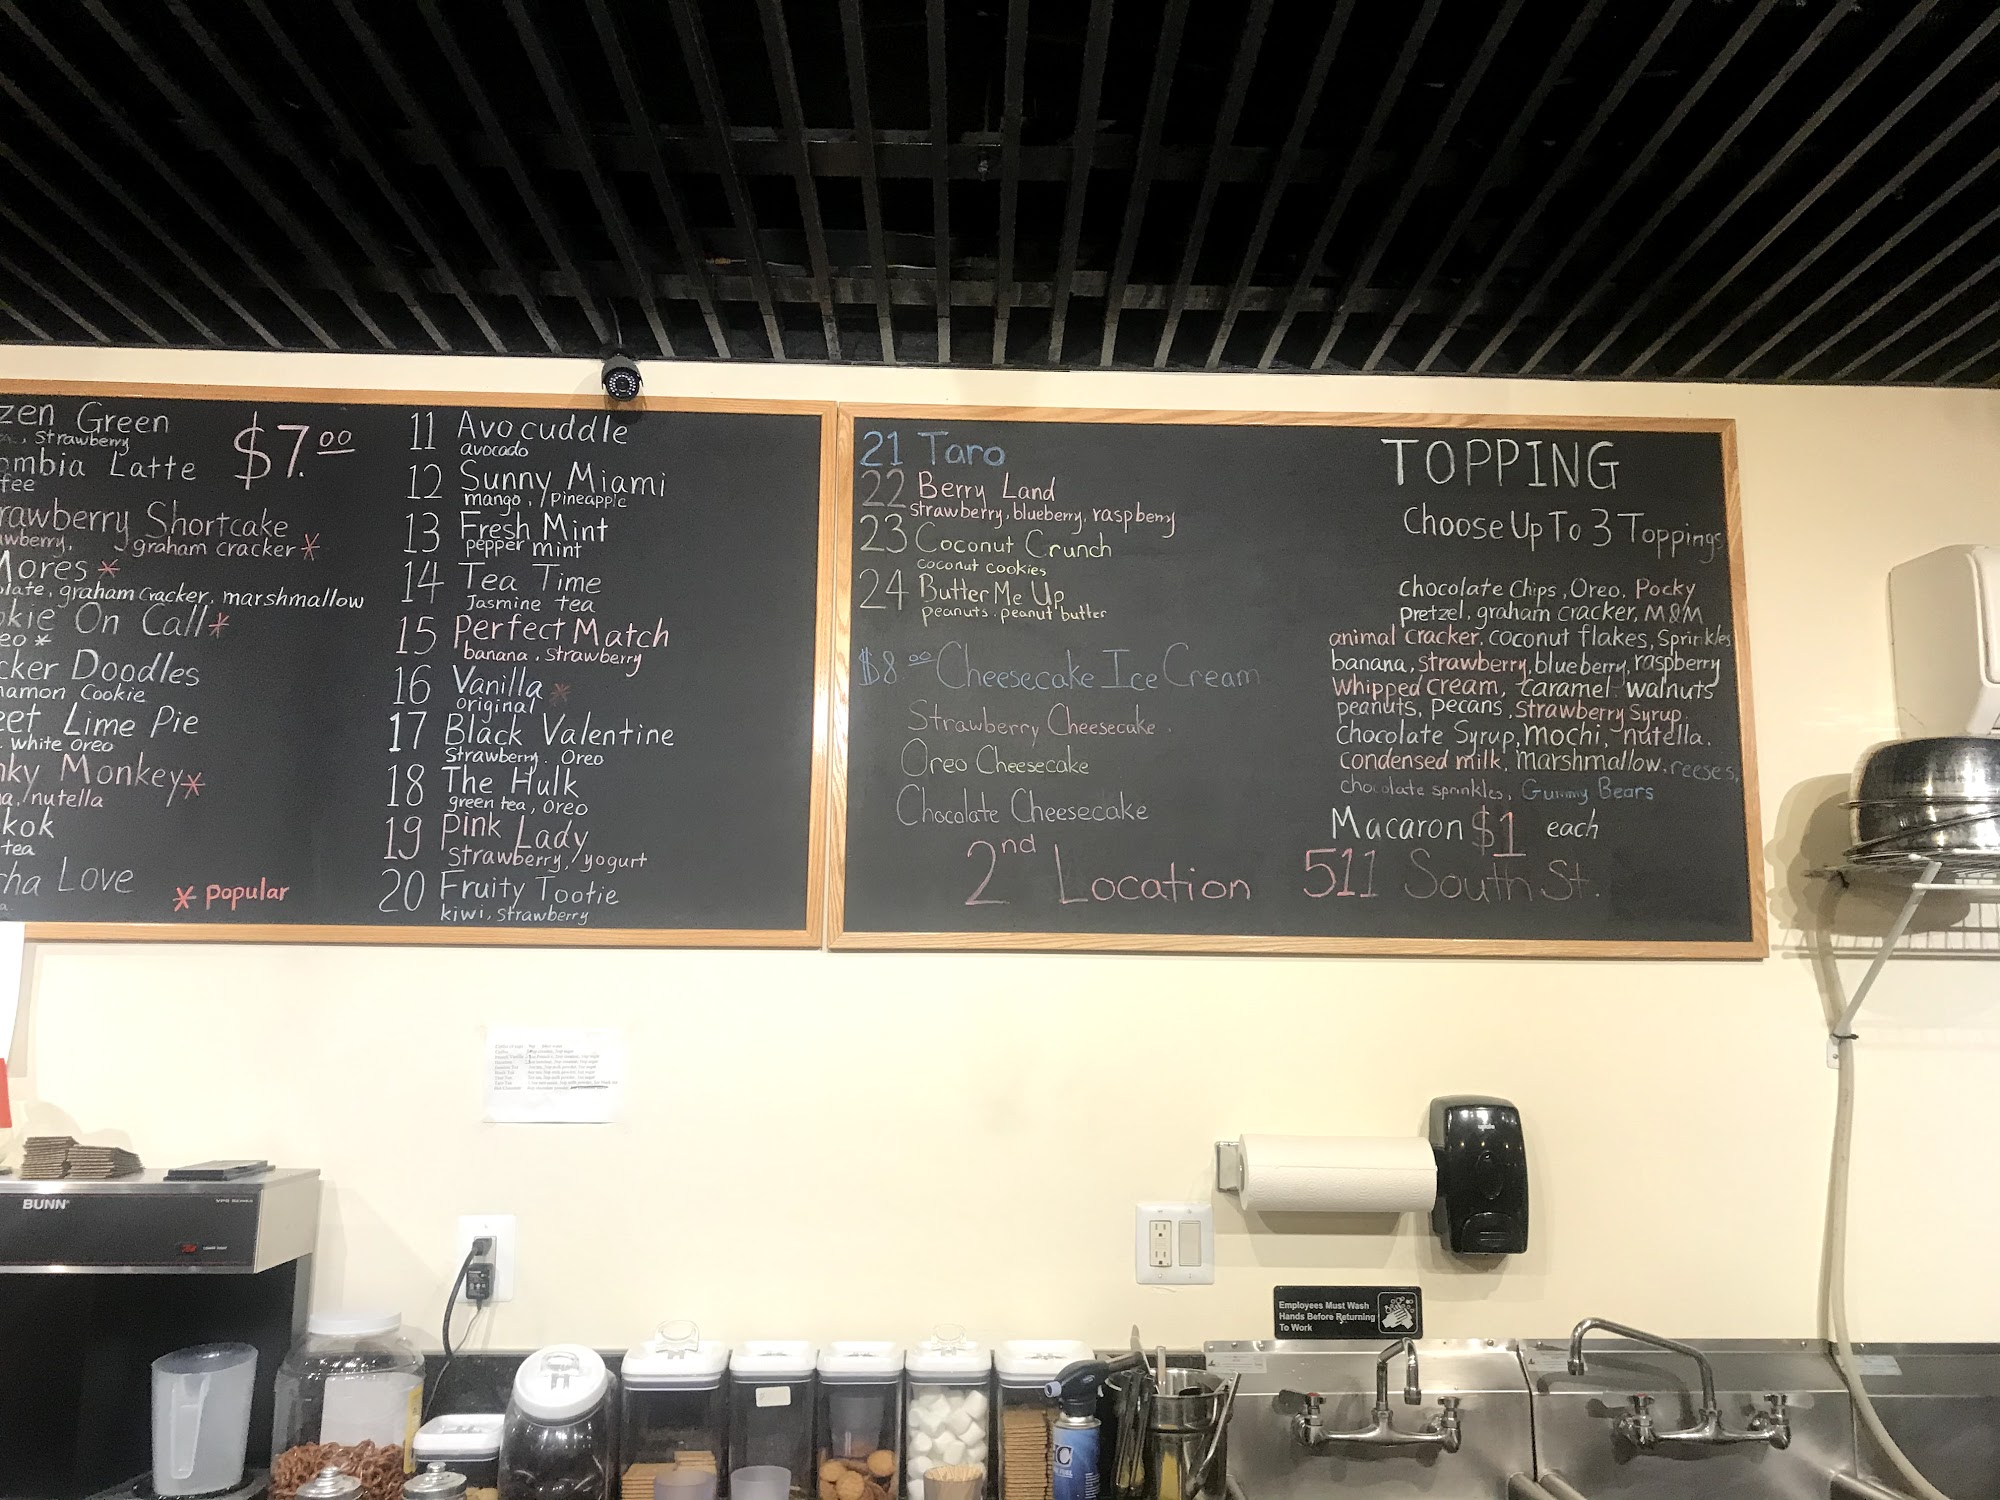 zen Green
, Strawberry
ombia Latte
fee
$7.00
rawberry Shortcake
awberry, graham cracker *
Mores *
late, graham cracker, marshmallow
kie On Call *
eo *
cker Doodles
namon Cookie
eet Lime Pie
. white oreo
nky Monkey *
a, nutella
kok
tea
cha Love
a.
* Popular
11 Avocuddle
avocado
12 Sunny Miami
mango, pineapple
13 Fresh Mint
pepper mint
14 Tea Time
Jasmine tea
15 Perfect Match
banana, strawberry
16 Vanilla *
original
17 Black Valentine
Strawberry, Oreo
18 The Hulk
green tea, oreo
19 Pink Lady
Strawberry, yogurt
20 Fruity Tootie
kiwi, strawberry
21 Taro
22 Berry Land
strawberry, blueberry, raspberry
23 Coconut Crunch
coconut cookies
24 Butter Me Up
peanuts, peanut butter
$8.00 Cheesecake Ice Cream
Strawberry Cheesecake.
Oreo Cheesecake
Chocolate Cheesecake
2nd Location 511 South St.
TOPPING
Choose Up To 3 Toppings
chocolate Chips, Oreo, Pocky
pretzel, graham cracker, M&M
animal cracker, coconut flakes, Sprinkles
banana, strawberry, blueberry, raspberry
whipped cream, caramel, walnuts
peanuts, pecans, strawberry syrup,
Chocolate Syrup, mochi, nutella.
condensed milk, marshmallow, reeses,
chocolate sprinkles, Gummy Bears
Macaron $1 each
BUNN
VPS SERIES
Employees Must Wash
Hands Before Returning
To Work